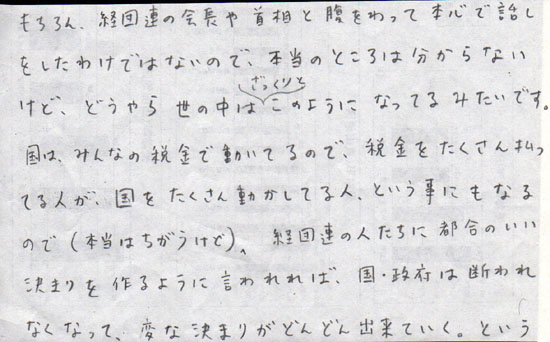 もちろん、経団連の会長や首相と腹をわって本心で話し
をしたわけではないので、本当のところは分からない
けど、どうやら世の中はざっくりとこのようになってるみたいです。
国は、みんなの税金で動いてるので、税金をたくさん払っ
てる人が、国をたくさん動かしてる人、という事にもなる
ので(本当はちがうけど)、経団連の人たちに都合のいい
決まりを作るように言われれば、国・政府は断われ
なくなって、変な決まりがどんどん出来ていく。という